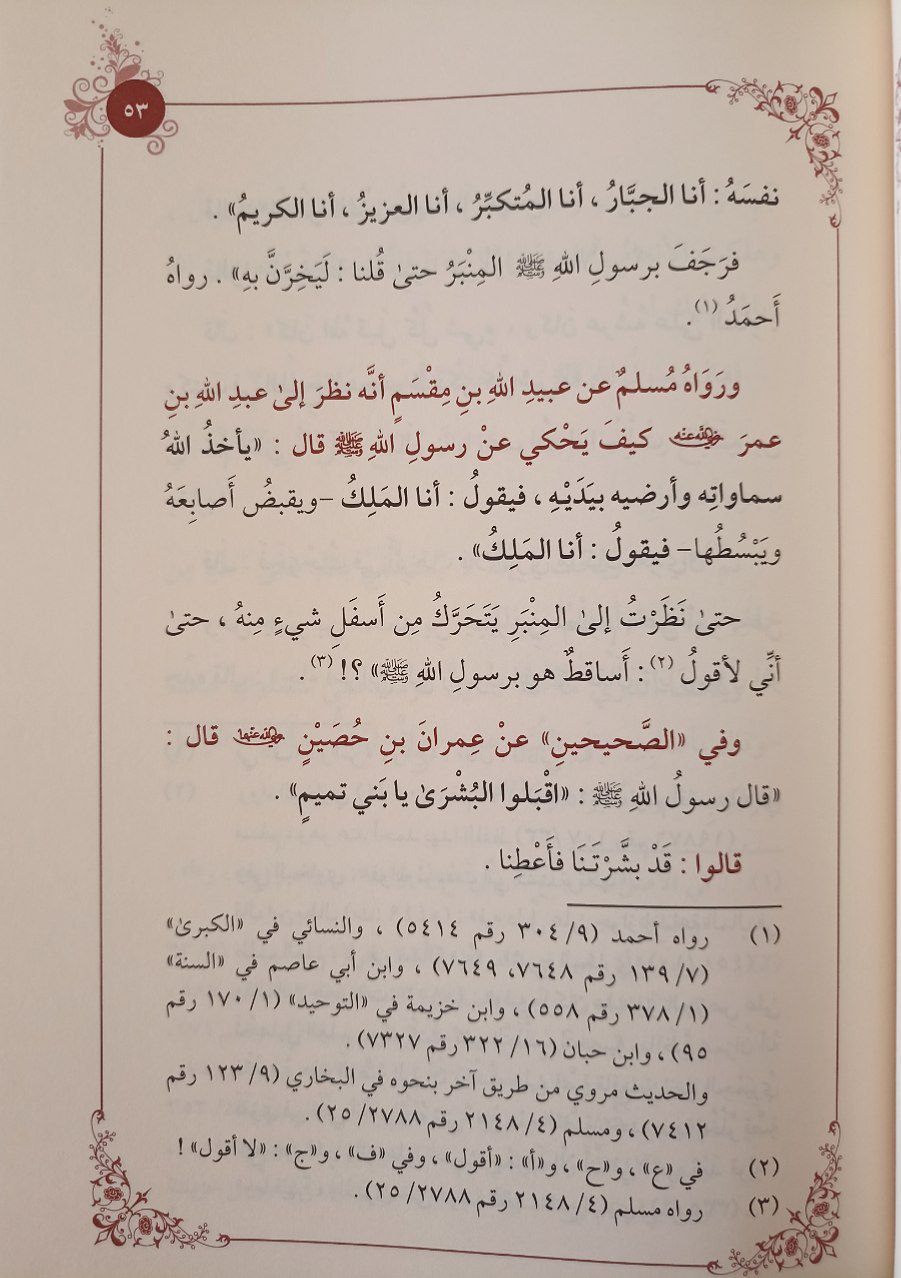 ٥٣
نفسَهُ : أنا الجبَّارُ ، أنا المُتكبِّرُ ، أنا العزيزُ ، أنا الكريمُ» .
فرَجَفَ برسولِ اللهِ ﷺ المِنْبَرُ حتىٰ قُلنا : لَيَخِرَّنَّ بهِ» . رواهُ
أَحمَدُ (١).
ورَوَاهُ مُسلمٌ عن عبيدِ اللهِ بنِ مِقْسَمٍ أنَّه نظرَ إلىٰ عبدِ اللهِ بنِ
عمرَ رضي الله عنه كيفَ يَحْكي عنْ رسولِ اللهِ ﷺ قال : «يأخذُ اللهُ
سماواتِه وأرضيه بيَدَيْهِ ، فيقولُ : أنا المَلِكُ –ويقبضُ أَصابِعَهُ
ويَبْسُطُها– فيقولُ : أنا المَلِكُ» .
حتىٰ نَظَرْتُ إلىٰ المِنْبَرِ يَتَحَرَّكُ مِن أَسفَلِ شيءٍ مِنهُ ، حتىٰ
أنِّي لأقولُ (٢): أَساقطٌ هو برسولِ اللهِ ﷺ» ؟! (٣) .
وفي «الصَّحيحينِ» عنْ عِمرانَ بنِ حُصَيْنٍ رضي الله عنهما قال :
«قال رسولُ اللهِ ﷺ : «اقْبَلوا البُشْرَىٰ يا بَني تميمٍ» .
قالوا : قَدْ بشَّرْتَنَا فأَعْطِنا .
(١) رواه أحمد (٩/ ٣٠٤ رقم ٥٤١٤) ، والنسائي في «الكبرىٰ»
(٧/ ١٣٩ رقم ٧٦٤٨، ٧٦٤٩) ، وابن أبي عاصم في «السنة»
(١/ ٣٧٨ رقم ٥٥٨) ، وابن خزيمة في «التوحيد» (١/ ١٧٠ رقم
٩٥) ، وابن حبان (١٦/ ٣٢٢ رقم ٧٣٢٧) .
والحديث مروي من طريق آخر بنحوه في البخاري (٩/ ١٢٣ رقم
٧٤١٢) ، ومسلم (٤/ ٢١٤٨ رقم ٢٧٨٨/ ٢٥) .
(٢) في «ع» ، و«ح» ، و«أ» : «أقول» ، وفي «ف» ، و«ج» : «لا أقول» !
(٣) رواه مسلم (٤/ ٢١٤٨ رقم ٢٧٨٨/ ٢٥) .